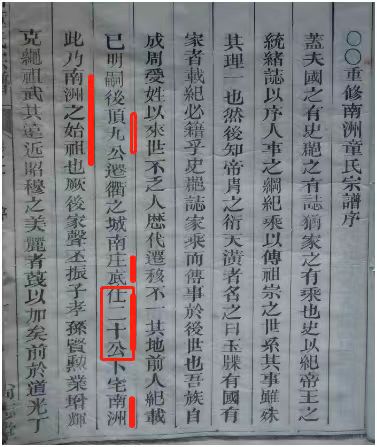 ○○重修南洲童氏宗譜序
蓋夫國之有史邑之有誌猶家之有乘也史以紀帝王之
統緒誌以序人事之綱紀乘以傳祖宗之世系其事雖殊
其理一也然後知帝胄之衍天潢者名之曰玉牒有國有
家者載紀必籍乎史邑誌家乘而傳事於後世也吾族自
成周受姓以來世不乏人歷代遷移不一其地前人紀載
已明嗣後頂九公遷衢之城南庄底仕二十公卜宅南洲
此乃南洲之始祖也厥後家聲丕振子孝孫賢勳業增輝
克繩祖武其遠近昭穆之美麗者蔑以加矣前於道光丁